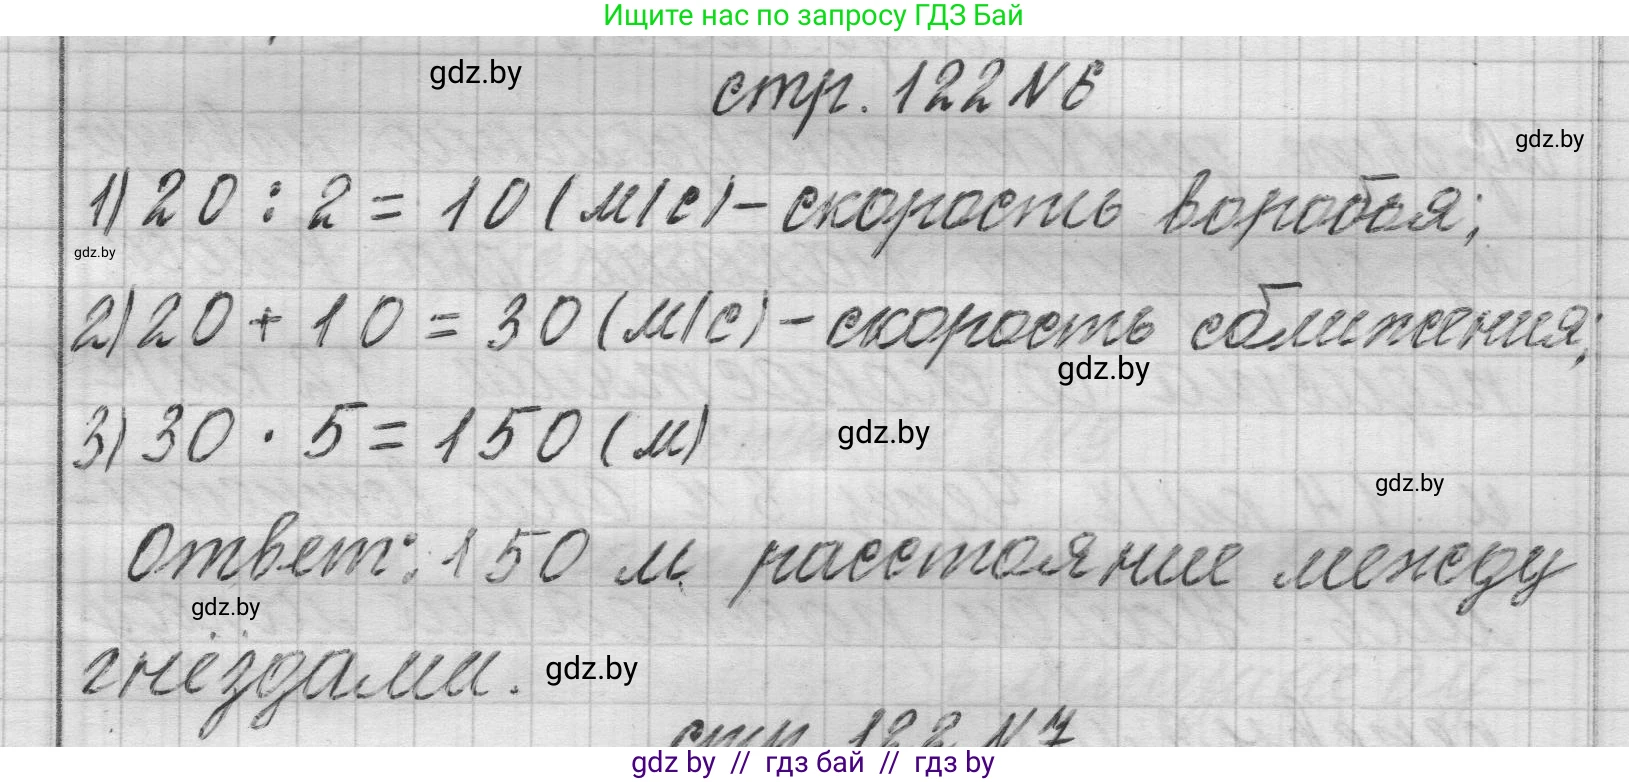 Ищите нас по запросу ГДЗ Бай
gdz.by
стр. 122 N 6
gdz.by
1) 20 : 2 = 10 (м/с) – скорость воробья;
gdz.by
2) 20 + 10 = 30 (м/с) – скорость сближения;
gdz.by
3) 30 · 5 = 150 (м)
gdz.by
gdz.by
Ответ: 150 м расстояние между
gdz.by
гнёздами.
gdz.by
стр. 122 N 7
gdz by // гдз бай // гдз by